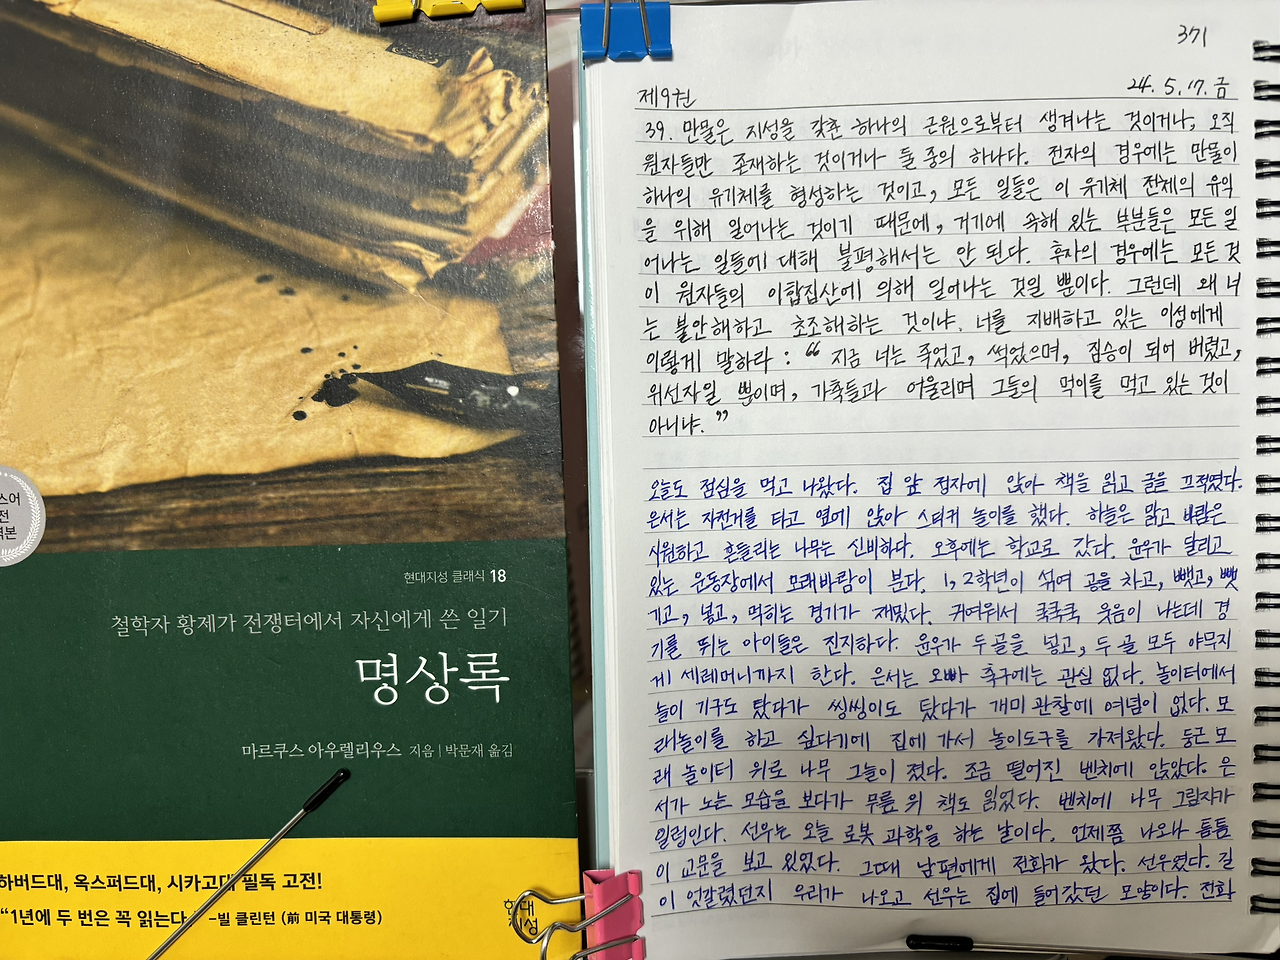 스어
전
역본
현대지성 클래식 18
철학자 황제가 전쟁터에서 자신에게 쓴 일기
명상록
마르쿠스 아우렐리우스 지음 | 박문재 옮김
하버드대, 옥스퍼드대, 시카고대 필독 고전!
“1년에 두 번은 꼭 읽는다 –빌 클린턴 (前 미국 대통령)
현대
지성
371
제9권 24. 5. 17. 금
39. 만물은 지성을 갖춘 하나의 근원으로부터 생겨나는 것이거나, 오직
원자들만 존재하는 것이거나 둘 중의 하나다. 전자의 경우에는 만물이
하나의 유기체를 형성하는 것이고, 모든 일들은 이 유기체 전체의 유익
을 위해 일어나는 것이기 때문에, 거기에 속해 있는 부분들은 모든 일
어나는 일들에 대해 불평해서는 안 된다. 후자의 경우에는 모든 것
이 원자들의 이합집산에 의해 일어나는 것일 뿐이다. 그런데 왜 너
는 불안해하고 초조해하는 것이냐. 너를 지배하고 있는 이성에게
이렇게 말하라 : “ 지금 너는 죽었고, 썩었으며, 짐승이 되어 버렸고,
위선자일 뿐이며, 가축들과 어울리며 그들의 먹이를 먹고 있는 것이
아니냐. ”
오늘도 점심을 먹고 나왔다. 집 앞 정자에 앉아 책을 읽고 글을 끄적였다.
은서는 자전거를 타고 옆에 앉아 스티커 놀이를 했다. 하늘은 맑고 바람은
시원하고 흔들리는 나무는 신비하다. 오후에는 학교로 갔다. 윤우가 달리고
있는 운동장에서 모래바람이 분다. 1, 2학년이 섞여 공을 차고, 뺏고, 뺏
기고, 넣고, 먹히는 경기가 재밌다. 귀여워서 쿡쿡쿡 웃음이 나는데 경
기를 뛰는 아이들은 진지하다. 윤우가 두 골을 넣고, 두 골 모두 야무지
게 세레머니까지 한다. 은서는 오빠 축구에는 관심 없다. 놀이터에서
놀이 기구도 탔다가 씽씽이도 탔다가 개미 관찰에 여념이 없다. 모
래놀이를 하고 싶다기에 집에 가서 놀이도구를 가져왔다. 둥근 모
래 놀이터 위로 나무 그늘이 졌다. 조금 떨어진 벤치에 앉았다. 은
서가 노는 모습을 보다가 무릎 위 책도 읽었다. 벤치에 나무 그림자가
일렁인다. 선우는 오늘 로봇 과학을 하는 날이다. 언제쯤 나오나 틈틈
이 교문을 보고 있었다. 그때 남편에게 전화가 왔다. 선우였다. 길
이 엇갈렸던지 우리가 나오고 선우는 집에 들어갔던 모양이다. 전화